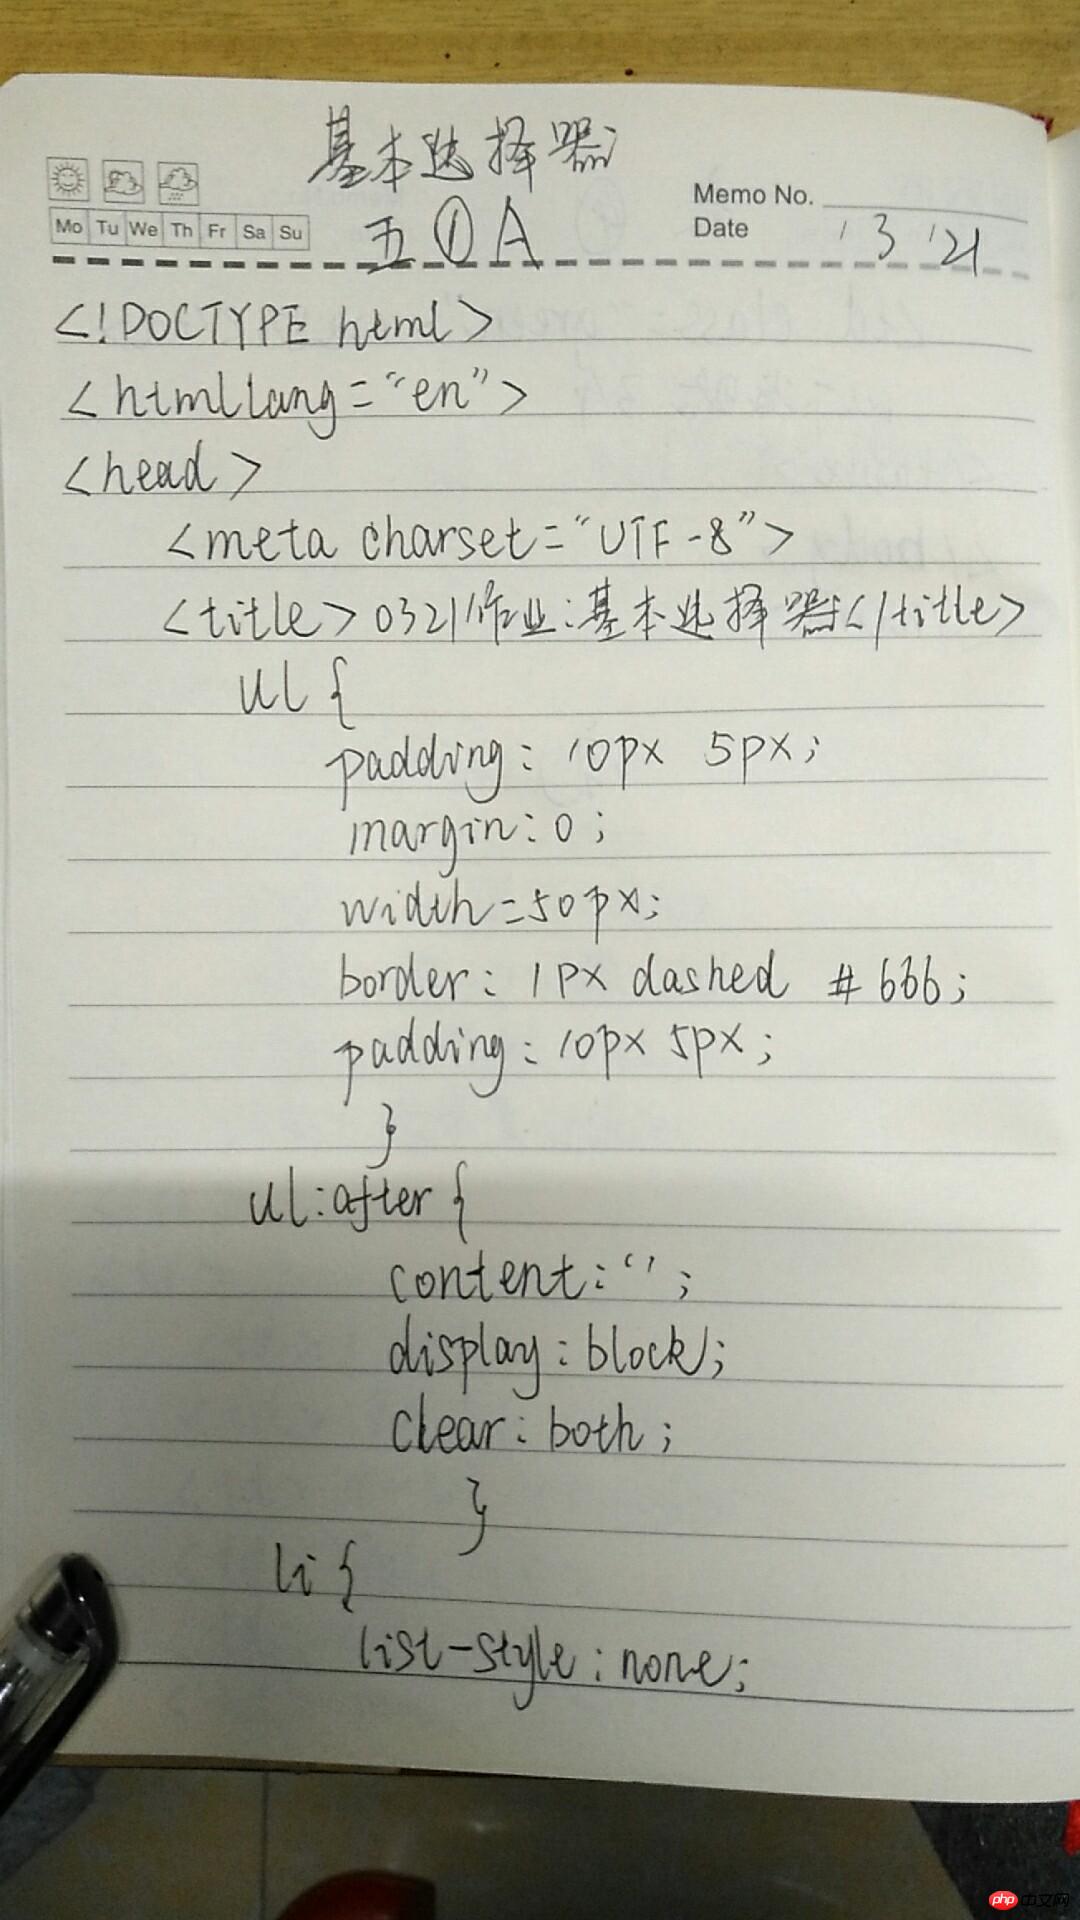 基本选择器
Mo Tu We Th Fr Sa Su
五 ① A
Memo No.
Date 3 '21
<!DOCTYPE html>
<html lang="en">
<head>
<meta charset="UTF-8">
<title>0321作业:基本选择器</title>
ul {
padding: 10px 5px;
margin: 0;
width=50px;
border: 1px dashed #666;
padding: 10px 5px;
}
ul:after {
content: '';
display: block;
clear: both;
}
li {
list-style: none;
php 中文网